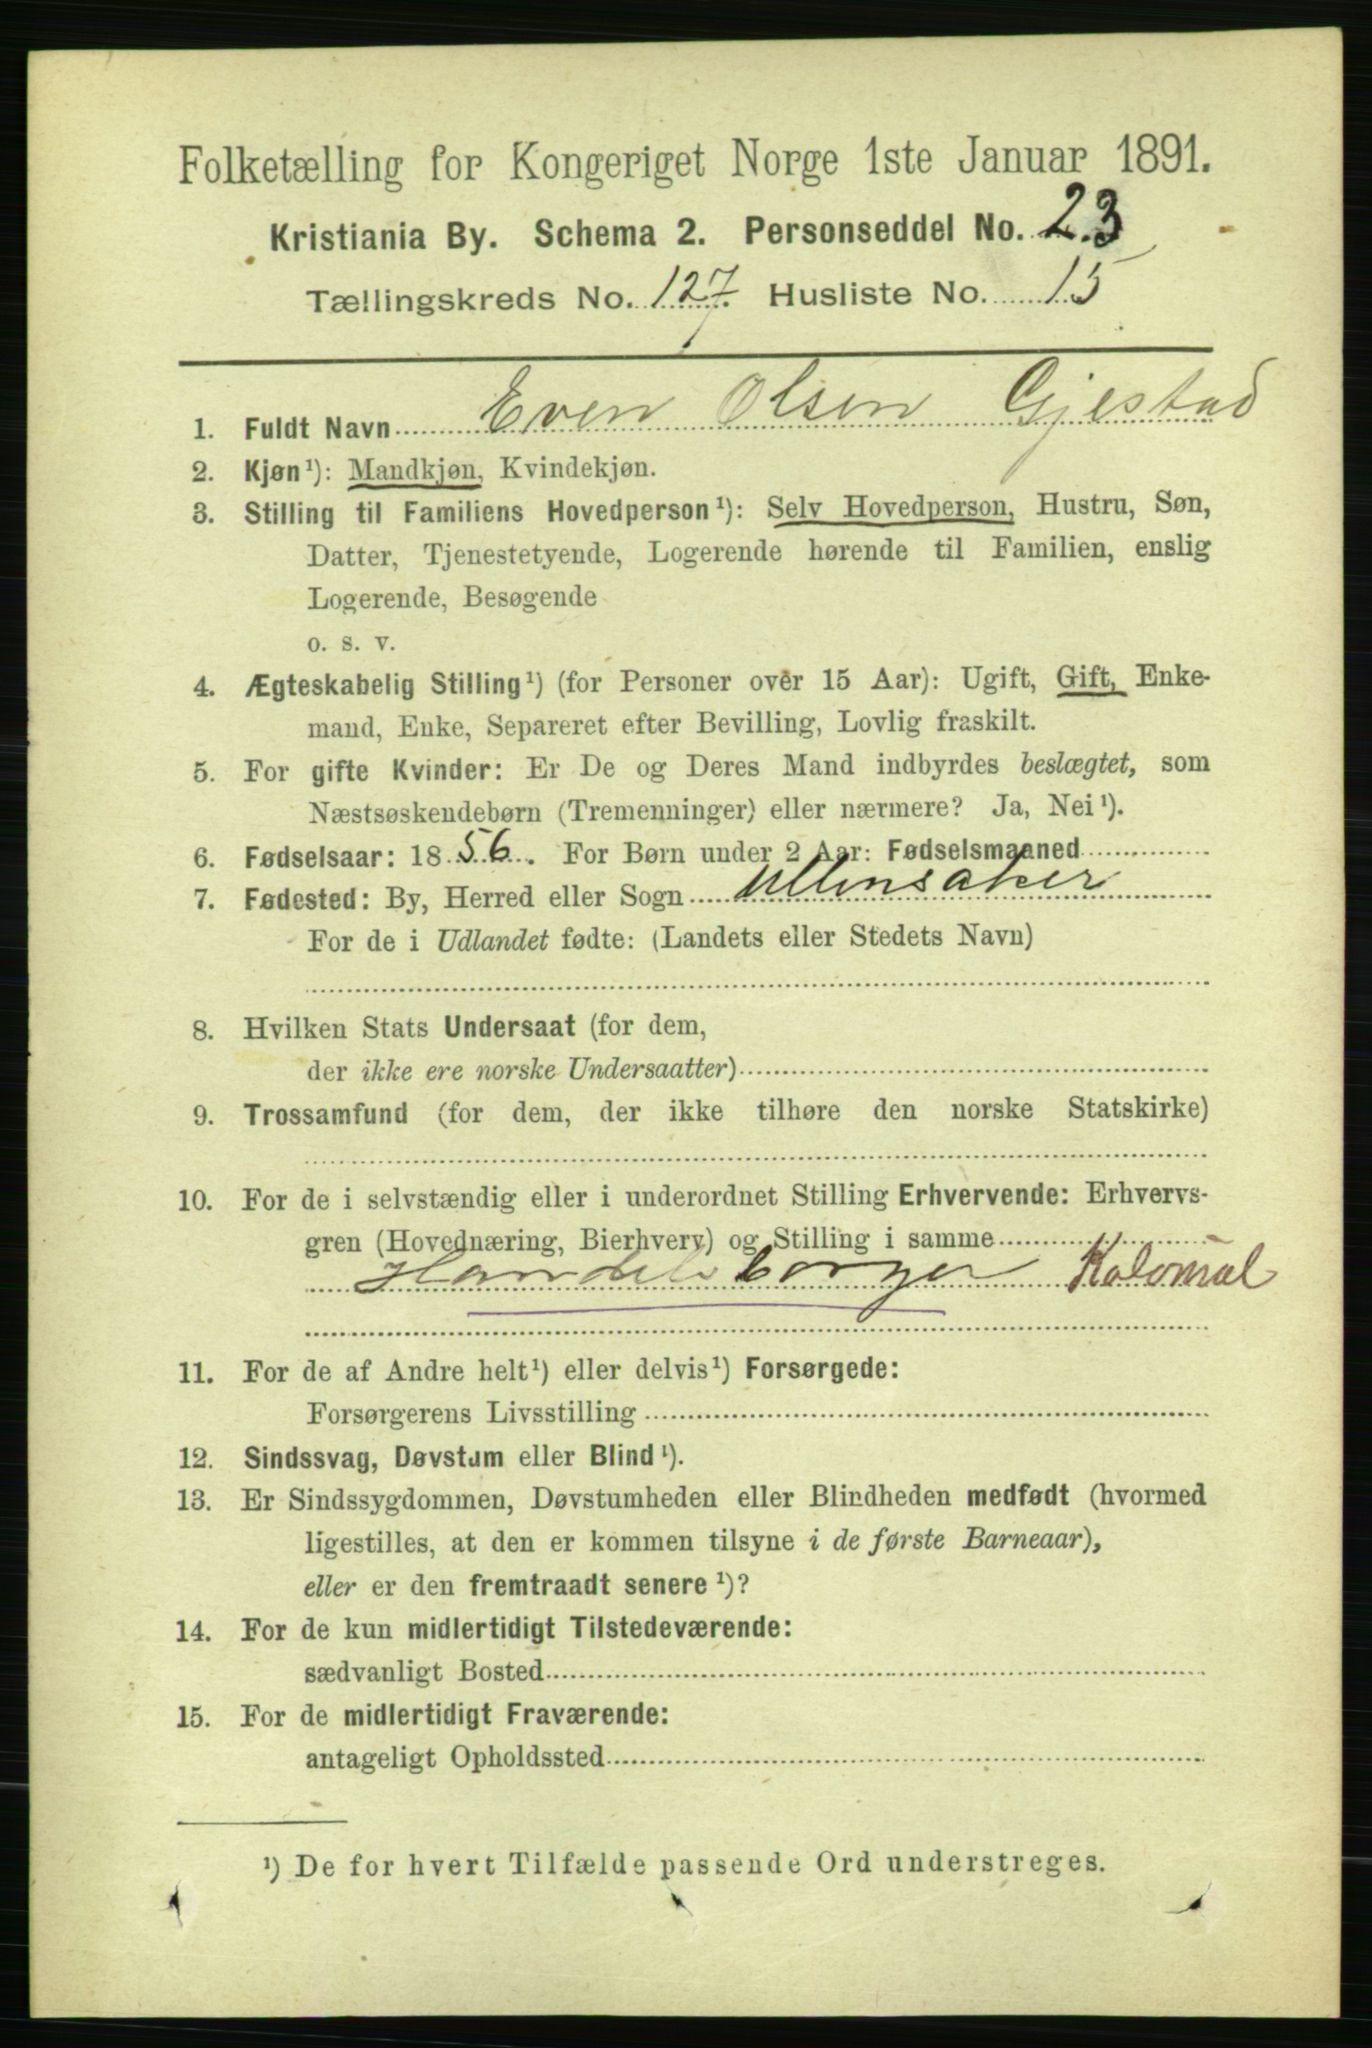 Folketælling for Kongeriget Norge 1ste Januar 1891.
Kristiania By. Schema 2. Personseddel No. 23
Tællingskreds No. 127. Husliste No. 15
1. Fuldt Navn Even Olsen Gjestad
2. Kjøn¹): Mandkjøn, Kvindekjøn.
3. Stilling til Familiens Hovedperson¹): Selv Hovedperson, Hustru, Søn,
Datter, Tjenestetyende, Logerende hørende til Familien, enslig
Logerende, Besøgende
o. s. v.
4. Ægteskabelig Stilling¹) (for Personer over 15 Aar): Ugift, Gift, Enke-
mand, Enke, Separeret efter Bevilling, Lovlig fraskilt.
5. For gifte Kvinder: Er De og Deres Mand indbyrdes beslægtet, som
Næstsøskendebørn (Tremenninger) eller nærmere? Ja, Nei¹).
6. Fødselsaar: 1856. For Børn under 2 Aar: Fødselsmaaned
7. Fødested: By, Herred eller Sogn Ullensaker
For de i Udlandet fødte: (Landets eller Stedets Navn)
8. Hvilken Stats Undersaat (for dem,
der ikke ere norske Undersaatter)
9. Trossamfund (for dem, der ikke tilhøre den norske Statskirke)
10. For de i selvstændig eller i underordnet Stilling Erhvervende: Erhvervs-
gren (Hovednæring, Bierhverv) og Stilling i samme
Handelsborger Kolonial
11. For de af Andre helt¹) eller delvis¹) Forsørgede:
Forsørgerens Livsstilling
12. Sindssvag, Døvstum eller Blind¹).
13. Er Sindssygdommen, Døvstumheden eller Blindheden medfødt (hvormed
ligestilles, at den er kommen tilsyne i de første Barneaar),
eller er den fremtraadt senere¹)?
14. For de kun midlertidigt Tilstedeværende:
sædvanligt Bosted
15. For de midlertidigt Fraværende:
antageligt Opholdssted
¹) De for hvert Tilfælde passende Ord understreges.